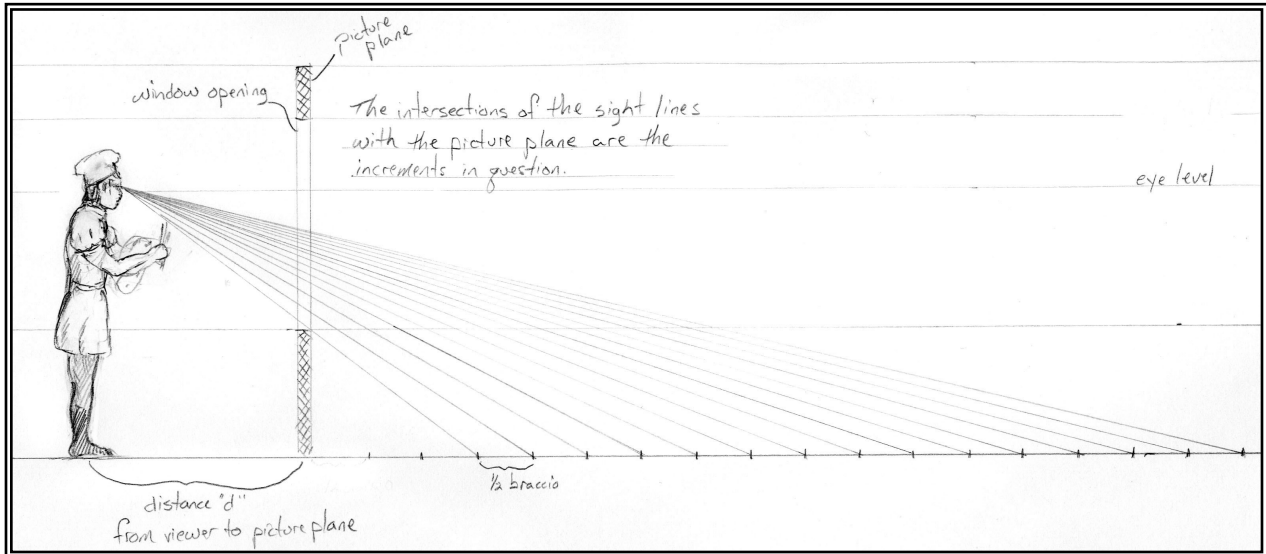 picture
plane
window opening
The intersections of the sight lines
with the picture plane are the
increments in question.
eye level
½ braccio
distance "d"
from viewer to picture plane